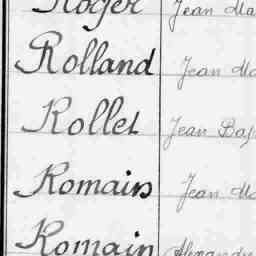 Roger Jean Ma
Rolland Jean Ma
Rollet Jean Bap
Romain Jean Ma
Romain Alexandre